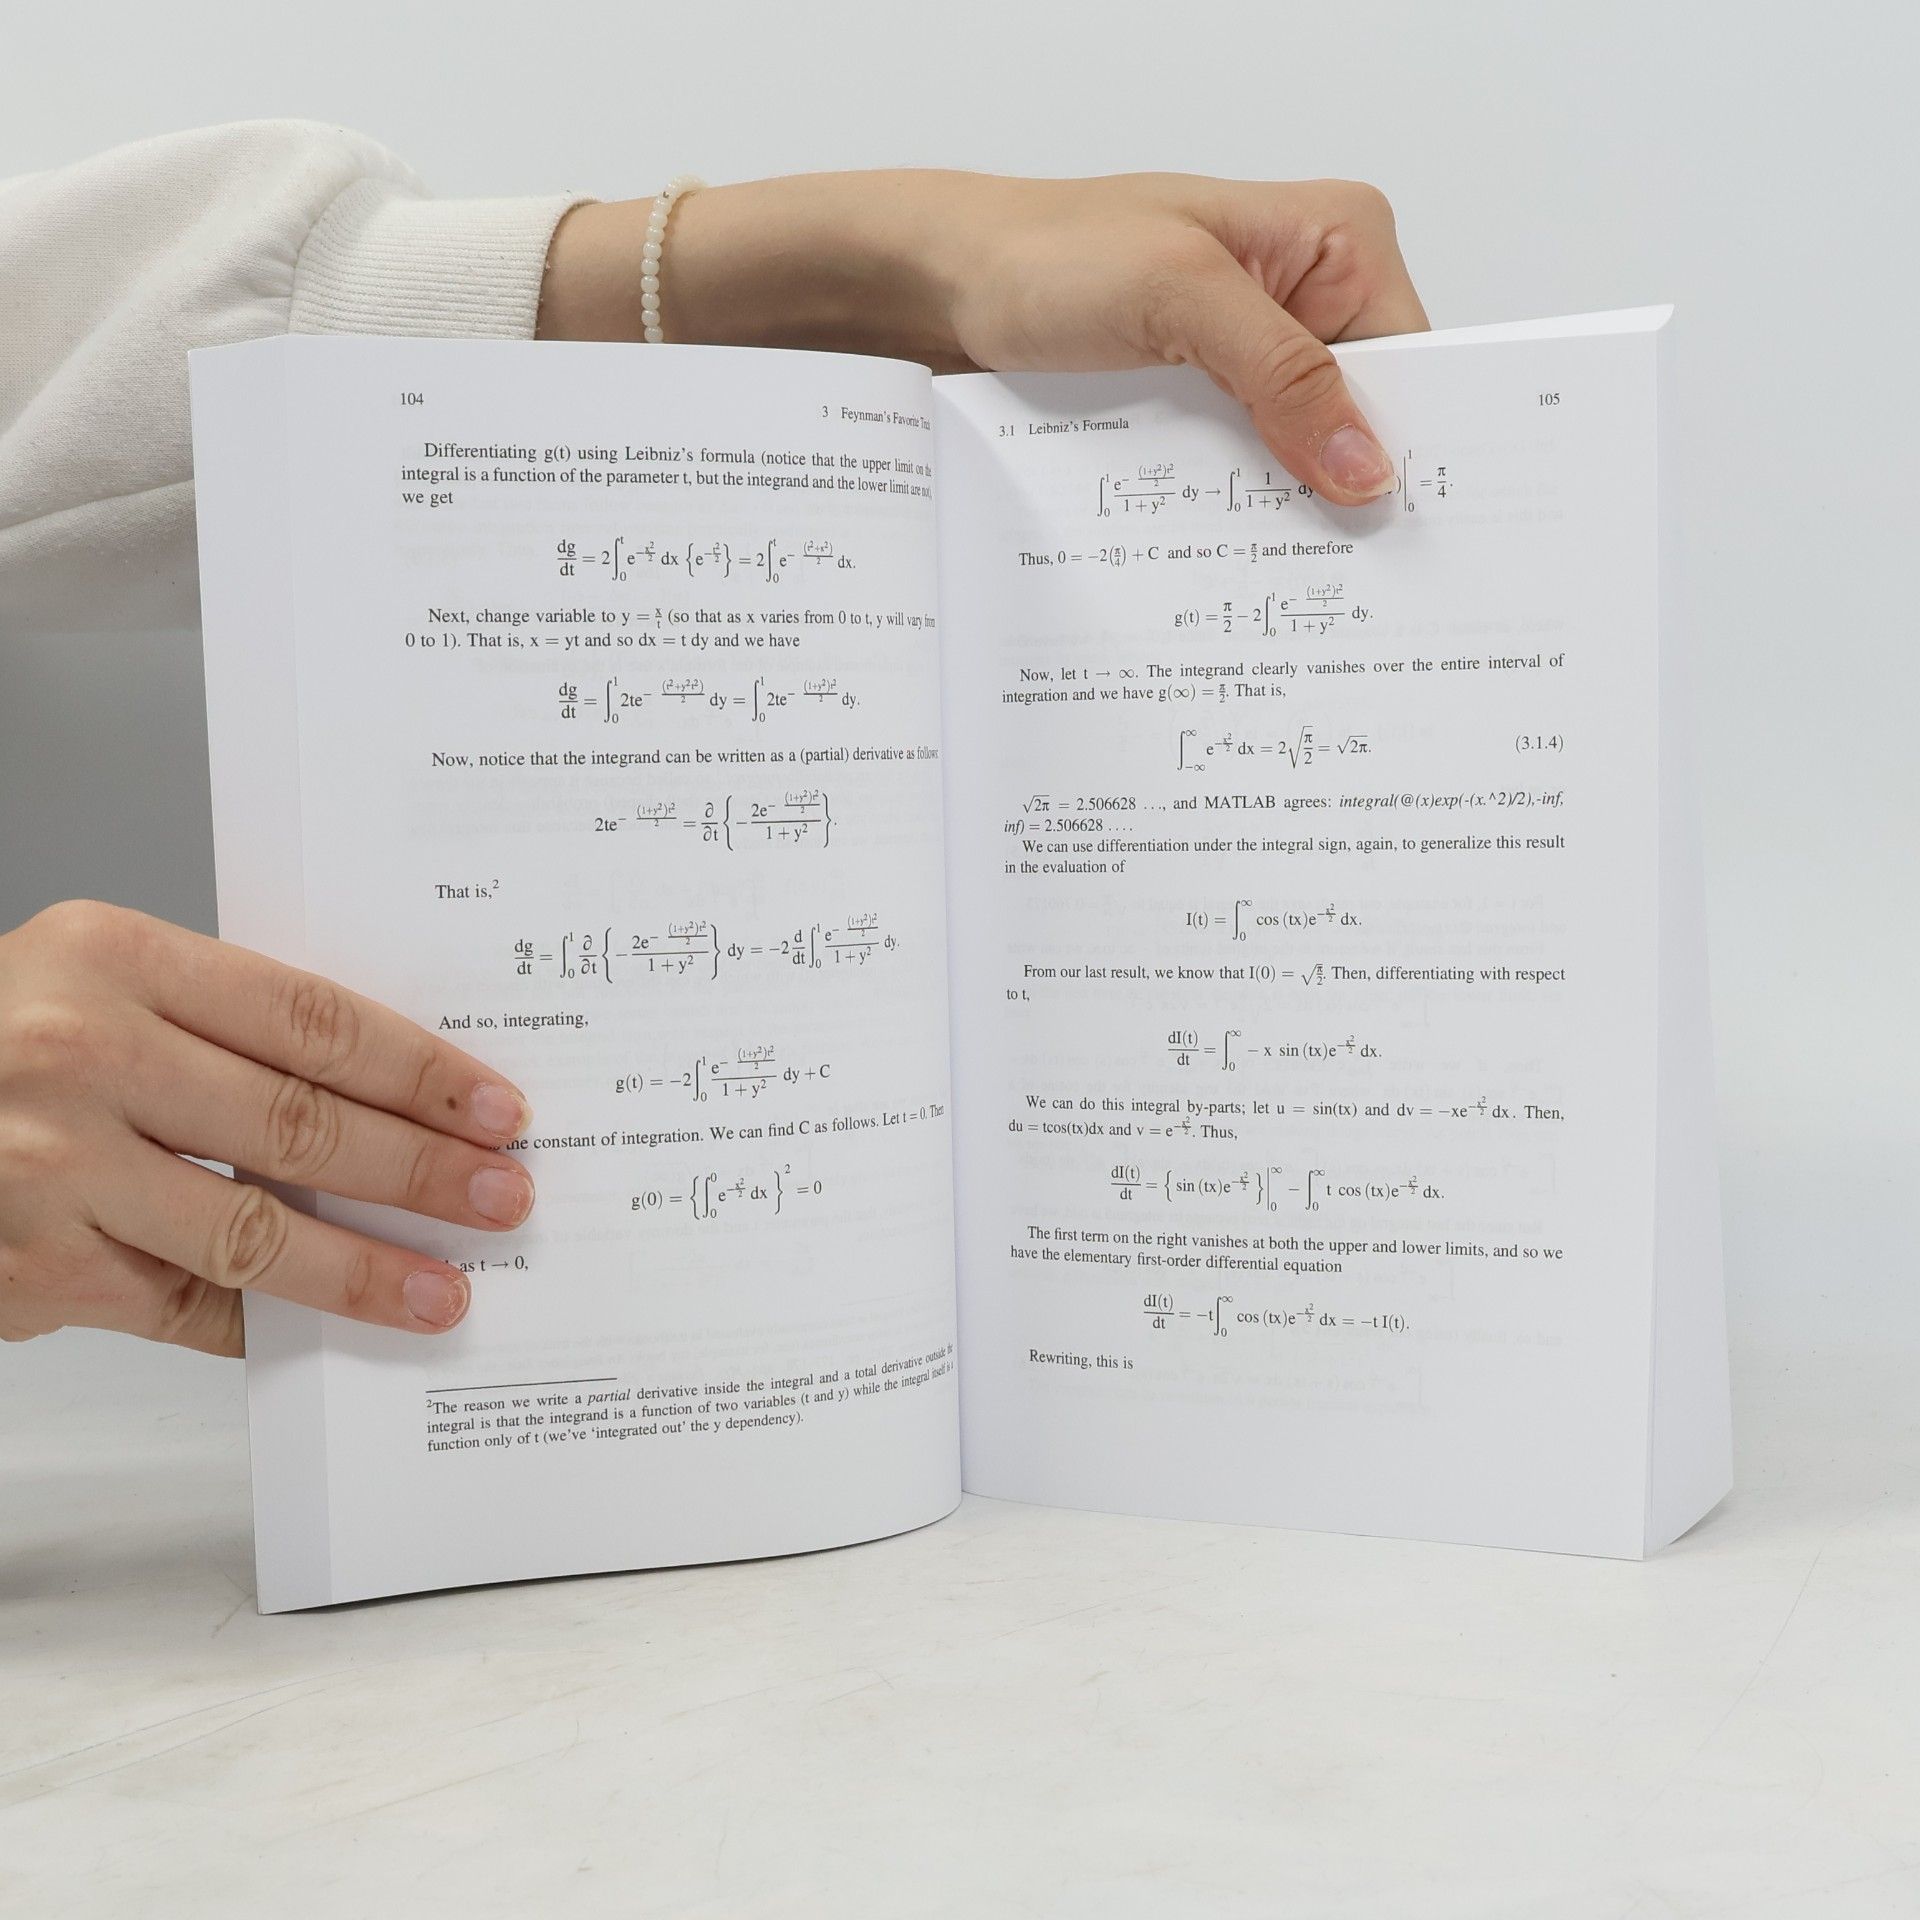 104
3 Feynman's Favorite
Differentiating g(t) using Leibniz's formula (notice that the upper limit on the
integral is a function of the parameter t, but the integrand and the lower limit are not),
we get
dg/dt = 2∫₀ᵗ e^(−x²/2) dx {e^(−t²/2)} = 2∫₀ᵗ e^(−(t²+x²)/2) dx.
Next, change variable to y = x/t (so that as x varies from 0 to t, y will vary from
0 to 1). That is, x = yt and so dx = t dy and we have
dg/dt = ∫₀¹ 2te^(−(t²+y²t²)/2) dy = ∫₀¹ 2te^(−(1+y²)t²/2) dy.
Now, notice that the integrand can be written as a (partial) derivative as follows:
2te^(−(1+y²)t²/2) = ∂/∂t {−2e^(−(1+y²)t²/2)/(1+y²)}.
That is,²
dg/dt = ∫₀¹ ∂/∂t {−2e^(−(1+y²)t²/2)/(1+y²)} dy = −2 d/dt ∫₀¹ e^(−(1+y²)t²/2)/(1+y²) dy.
And so, integrating,
g(t) = −2∫₀¹ e^(−(1+y²)t²/2)/(1+y²) dy + C
the constant of integration. We can find C as follows. Let t = 0. Then
g(0) = {∫₀⁰ e^(−x²/2) dx}² = 0
as t → 0,
²The reason we write a partial derivative inside the integral and a total derivative outside the
integral is that the integrand is a function of two variables (t and y) while the integral itself is a
function only of t (we've 'integrated out' the y dependency).
105
3.1 Leibniz's Formula
∫₀¹ e^(−(1+y²)t²/2)/(1+y²) dy → ∫₀¹ 1/(1+y²) dy )|₀¹ = π/4.
Thus, 0 = −2(π/4) + C and so C = π/2 and therefore
g(t) = π/2 − 2∫₀¹ e^(−(1+y²)t²/2)/(1+y²) dy.
Now, let t → ∞. The integrand clearly vanishes over the entire interval of
integration and we have g(∞) = π/2. That is,
∫₋∞^∞ e^(−x²/2) dx = 2√(π/2) = √2π. (3.1.4)
√2π = 2.506628 ..., and MATLAB agrees: integral(@(x)exp(-(x.^2)/2),-inf,
inf) = 2.506628 ....
We can use differentiation under the integral sign, again, to generalize this result
in the evaluation of
I(t) = ∫₀^∞ cos (tx)e^(−x²/2) dx.
From our last result, we know that I(0) = √(π/2). Then, differentiating with respect
to t,
dI(t)/dt = ∫₀^∞ − x sin (tx)e^(−x²/2) dx.
We can do this integral by-parts; let u = sin(tx) and dv = −xe^(−x²/2) dx. Then,
du = tcos(tx)dx and v = e^(−x²/2). Thus,
dI(t)/dt = {sin (tx)e^(−x²/2)}|₀^∞ − ∫₀^∞ t cos (tx)e^(−x²/2) dx.
The first term on the right vanishes at both the upper and lower limits, and so we
have the elementary first-order differential equation
dI(t)/dt = −t∫₀^∞ cos (tx)e^(−x²/2) dx = −t I(t).
Rewriting, this is